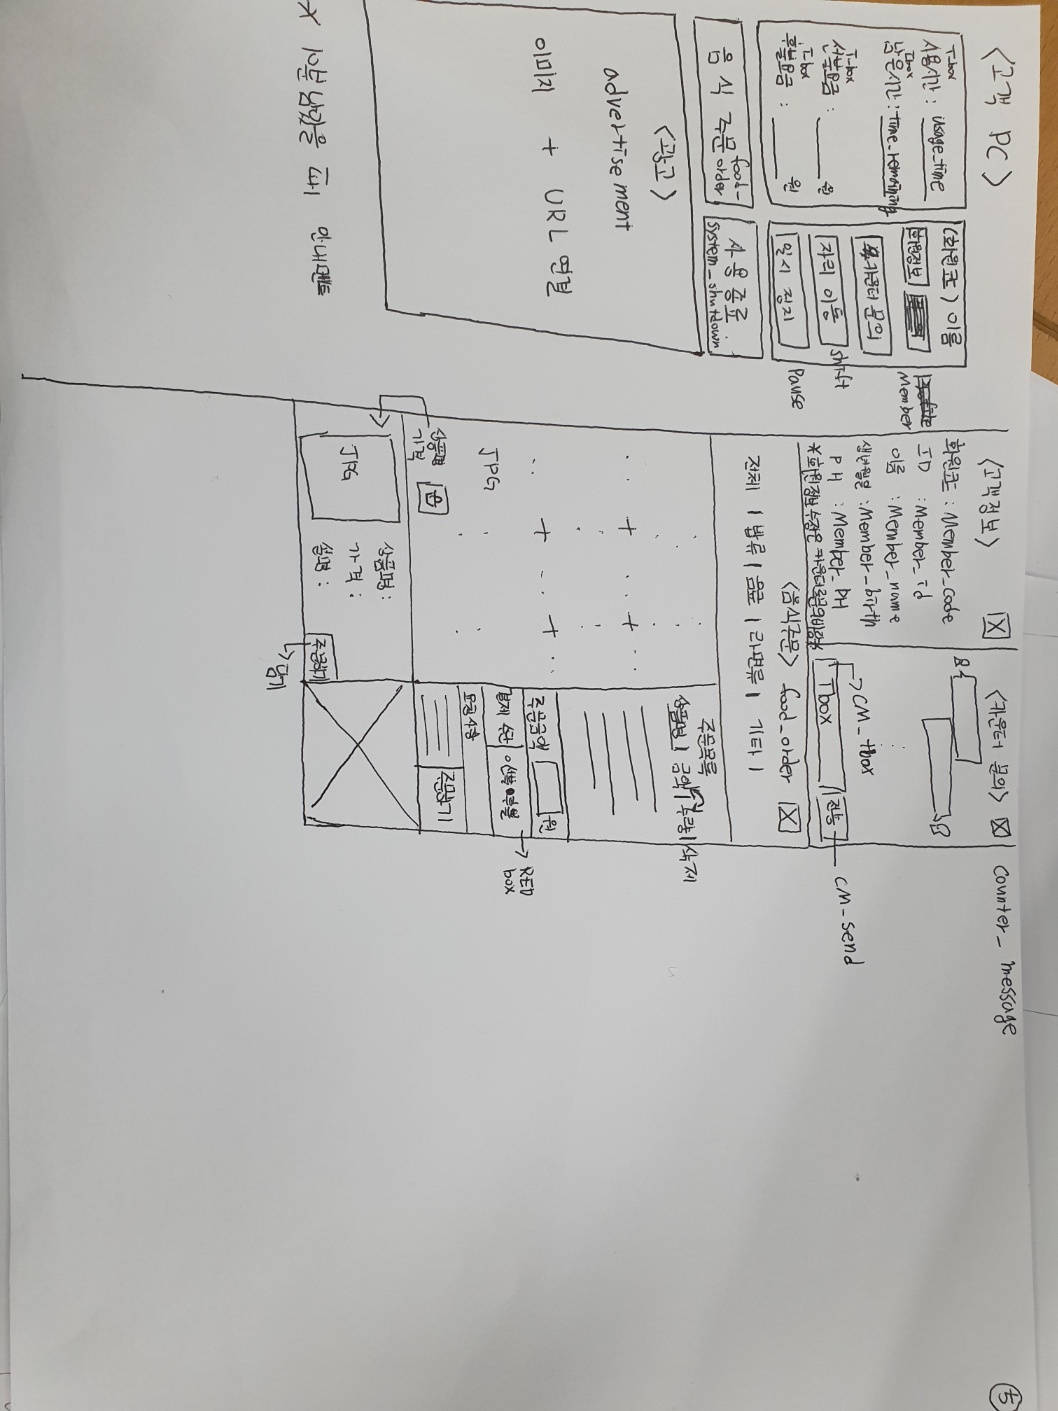 <고객 PC>
T-box
사용시간 : usage_time
Tbox
남은시간 : time_remaining
T-box
선불요금 : 원
T-box
후불요금 : 원
(회원코드) 이름
회원정보
Member
카운터 문의
자리 이동 shift
일시 정지 Pause
음식 주문 food_order
사용종료
system_shutdown
<광고>
advertisement
이미지 + URL 연결
* 10분 남았을 때 안내멘트
<고객정보> X
회원코드 : Member_code
ID : Member_id
이름 : Member_name
생년월일 : Member_birth
PH : Member_PH
*회원정보 수정은 카운터로 문의바람*
<카운터 문의> X
counter_message
5
CM_tbox
Tbox
전송
CM_send
<음식주문> food_order X
전체 | 밥류 | 음료 | 라면류 | 기타 |
주문목록
상품명 | 금액 | 수량 | 삭제
주문금액 원
결제 수단 선불 후불
RED box
요청사항
주문하기
JPG
상품명
가격
JPG
상품명 :
가격 :
설명 :
주문하기
담기